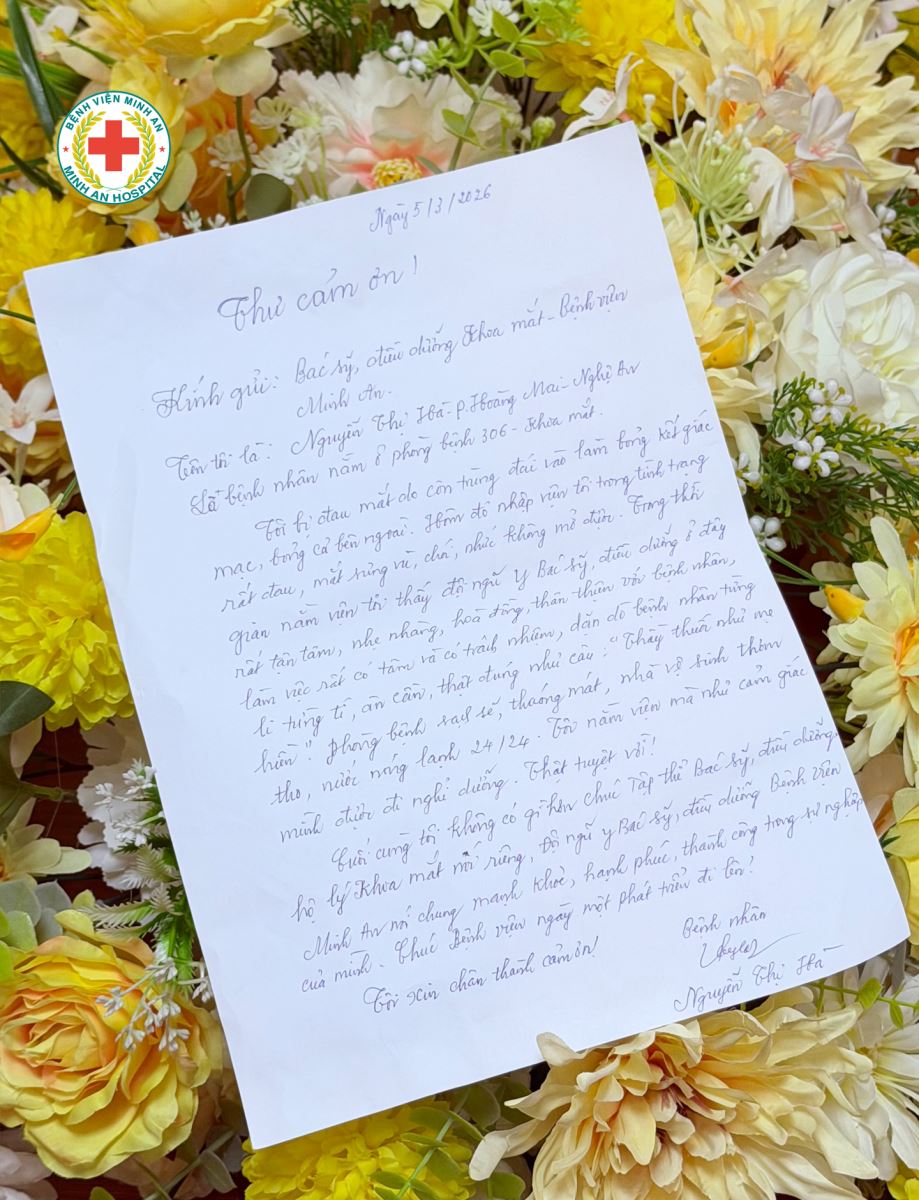 BỆNH VIỆN MINH AN
MINH AN HOSPITAL
Ngày 5/3/2026
Thư cảm ơn!
Kính gửi: Bác sỹ, điều dưỡng Khoa mắt - Bệnh viện
Minh An.
Tên tôi là: Nguyễn Thị Hà - P. Hoàng Mai - Nghệ An
Là bệnh nhân nằm ở phòng bệnh 306 - Khoa mắt.
Tôi bị đau mắt do côn trùng đái vào làm bỏng kết giác
mạc, bỏng cả bên ngoài. Hôm đó nhập viện tôi trong tình trạng
rất đau, mắt sưng vù, chói, nhức không mở được. Trong thời
gian nằm viện tôi thấy đội ngũ y Bác sỹ, điều dưỡng ở đây
rất tận tâm, nhẹ nhàng, hoà đồng, thân thiện với bệnh nhân,
làm việc rất có tâm và có trách nhiệm, dặn dò bệnh nhân từng
li từng tí, ân cần, thật đúng như câu: "Thầy thuốc như mẹ
hiền". Phòng bệnh sạch sẽ, thoáng mát, nhà vệ sinh thơm
tho, nước nóng lạnh 24/24. Tôi nằm viện mà như cảm giác
mình được đi nghỉ dưỡng. Thật tuyệt vời!
Cuối cùng tôi không có gì hơn chúc Tập thể Bác sỹ, điều dưỡng,
hộ lý Khoa mắt nói riêng, Đội ngũ y Bác sỹ, điều dưỡng Bệnh viện
Minh An nói chung mạnh khoẻ, hạnh phúc, thành công trong sự nghiệp
của mình. Chúc Bệnh viện ngày một phát triển đi lên!
Tôi xin chân thành cảm ơn!
Bệnh nhân
Nguyễn Thị Hà